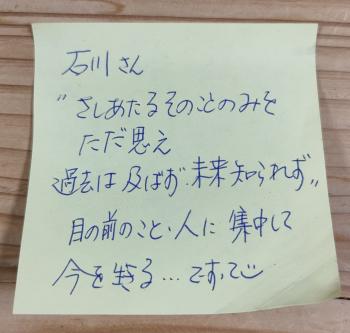 石川さん
"さしあたるそのことのみを
ただ思え
過去は及ばず・未来知られず"
目の前のこと、人に集中して
今を生きる…ですって